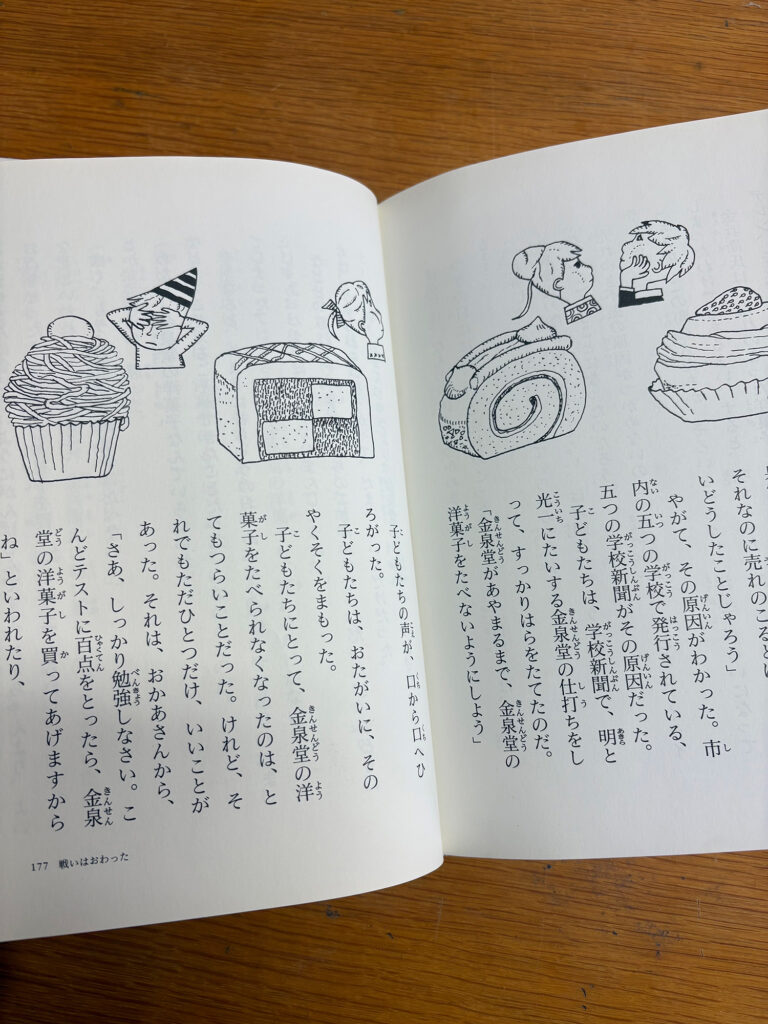 それなのに売れのこるとは
いどうしたことじゃろう」
やがて、その原因がわかった。市
内の五つの学校で発行されている、
五つの学校新聞がその原因だった。
子どもたちは、学校新聞で、明と
光一にたいする金泉堂の仕打ちをし
って、すっかりはらをたてたのだ。
「金泉堂があやまるまで、金泉堂の
洋菓子をたべないようにしよう」
子どもたちの声が、口から口へひ
ろがった。
子どもたちは、おたがいに、その
やくそくをまもった。
子どもたちにとって、金泉堂の洋
菓子をたべられなくなったのは、と
てもつらいことだった。けれど、そ
れでもただひとつだけ、いいことが
あった。それは、おかあさんから、
「さあ、しっかり勉強しなさい。こ
んどテストに百点をとったら、金泉
堂の洋菓子を買ってあげますから
ね」といわれたり、
177 戦いはおわった